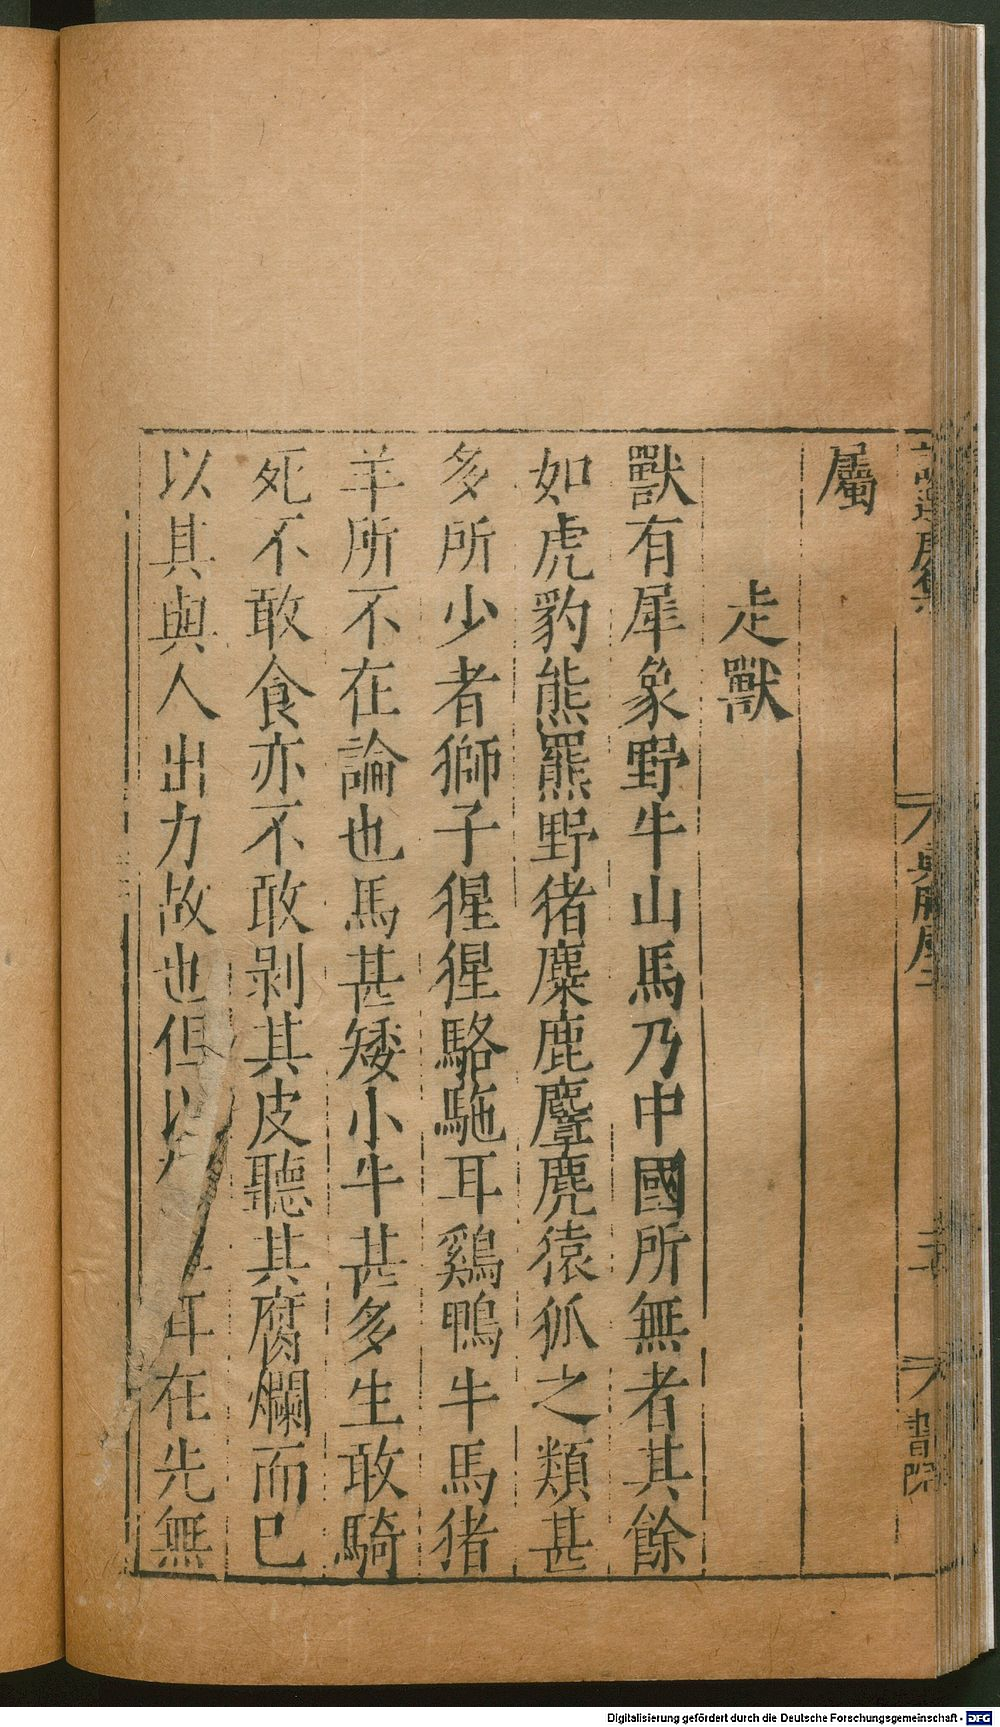 屬
走獸
獸有犀象野牛山馬乃中國所無者其餘
如虎豹熊羆野猪麋鹿麞麂猿狐之類甚
多所少者獅子猩猩駱駞耳鷄鴨牛馬猪
羊所不在論也馬甚矮小牛甚多生敢騎
死不敢食亦不敢剥其皮聽其腐爛而已
以其與人出力故也但以耳在先無
Digitalisierung gefördert durch die Deutsche Forschungsgemeinschaft - DFG